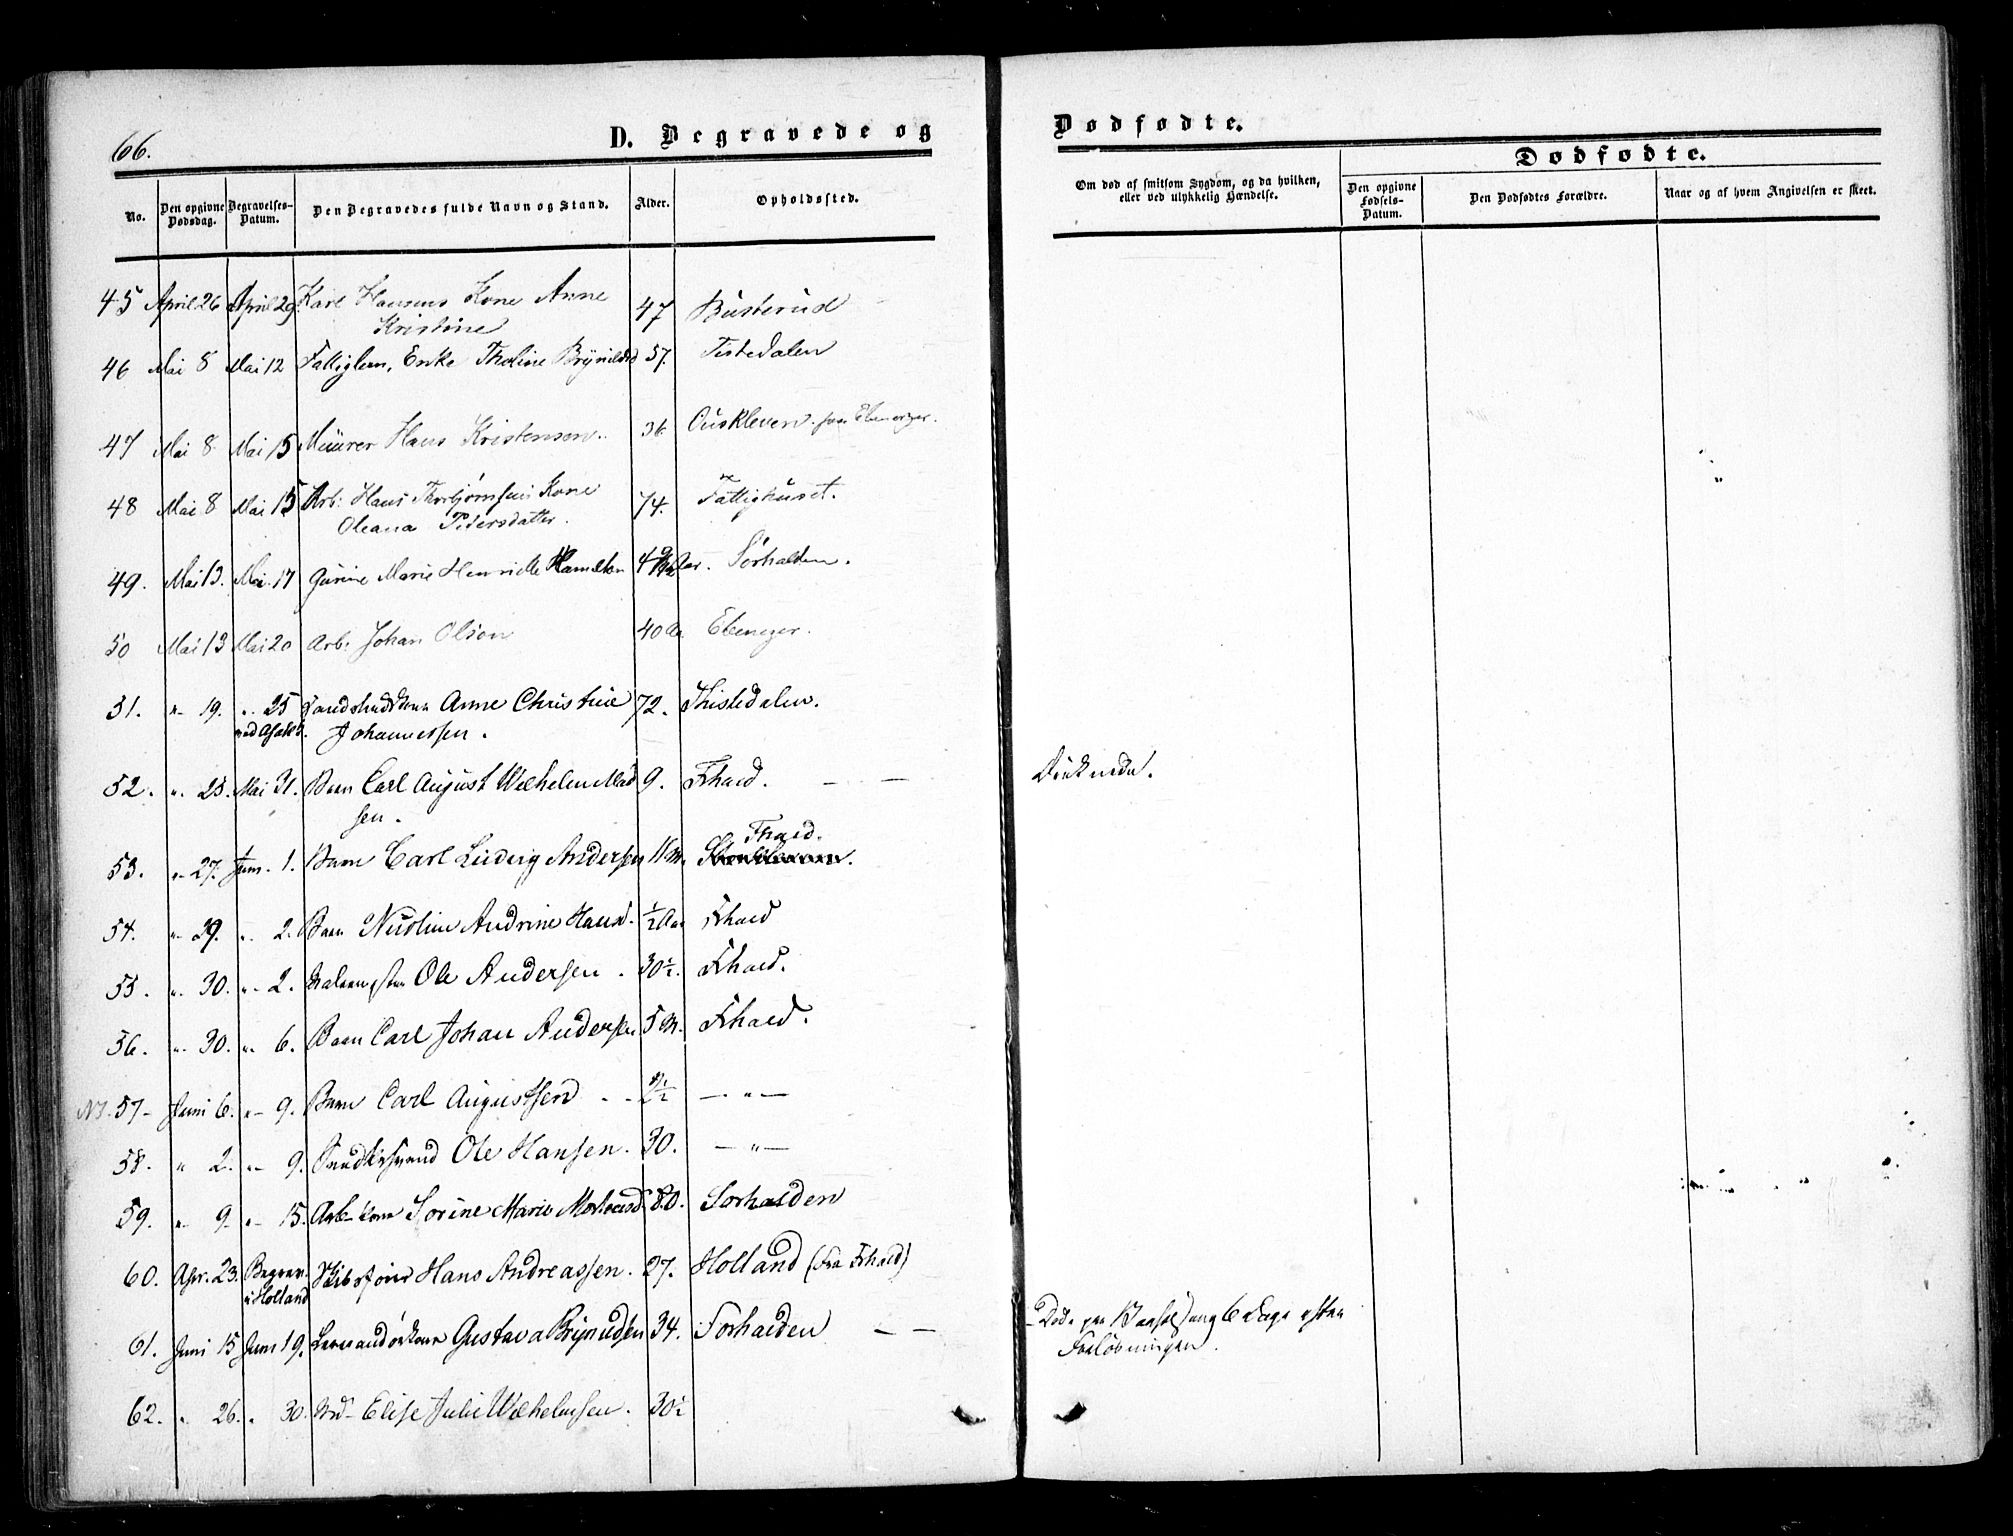 66.
D. Begravede og
Dødfødte.
No.
Den opgivne Dødsdag.
Begravelses-Datum.
Den Begravedes fulde Navn og Stand.
Alder.
Opholdssted.
Om død af smitsom Sygdom, og da hvilken,
eller ved ulykkelig Hændelse.
Dødfødte.
Den opgivne Fødsels-Datum.
Den Dødfødtes Forældre.
Naar og af hvem Angivelsen er skeet.
45 April 26 April 29 Karl Hansens Kone Anne 47 Busterud
Kristine
46 Mai 8 Mai 12 Fattiglem, Enke Tholine Brynildsd 57. Tistedalen
47 Mai 8 Mai 15 Muurer Hans Kristensen. 36 Ebenezer.
48 Mai 8 Mai 15 Arb: Hans Thorbjørnsens Kone 74. Fattighuset.
Oleana Pedersdatter.
49. Mai 13. Mai. 17 Marie Henriette Hamelton Sørhalden.
50 Mai 13 Mai 20 Arb: Johan Olson 40 Aa Ebenezer.
51. " 19. " 25 Anne Christine 72. Thistedalen.
Johannessen.
52. " 25. Mai 31. Barn Carl August Wilhelm Mad 9. Frhald. — —
sen.
53. " 27. Juni. 1. Barn Carl Ludvig Andersen 11 M. Frhald.
54. " 29. " 2. Barn Nicoline Andrine Hansd. ½ Aar Frhald
55. " 30. " 2. Ole Andersen. 30½. Frhald.
56. " 30. " 6. Barn Carl Johan Andersen 5 M. Frhald.
57 - Juni 6. " 9. Barn Carl Augustsen - - 2½ — " —
58. " 2. " 9. Ole Hansen. 30. — " —
59. " 9. " 15. Arb- Kone Sorine Marie Mortensd. 80. Sørhalden
60. Apr. 23. Begrav. Hans Andreassen. 27. Holland (fra Frhald)
i Holland
61. Juni 15 Juni 19. Gustava Brynildsen 34. Forhalden — —
Døde paa Barselseng 6 Dage efter
Forløsningen.
62. " 26. " 30. Elise Julie Wilhelmsen. 30½